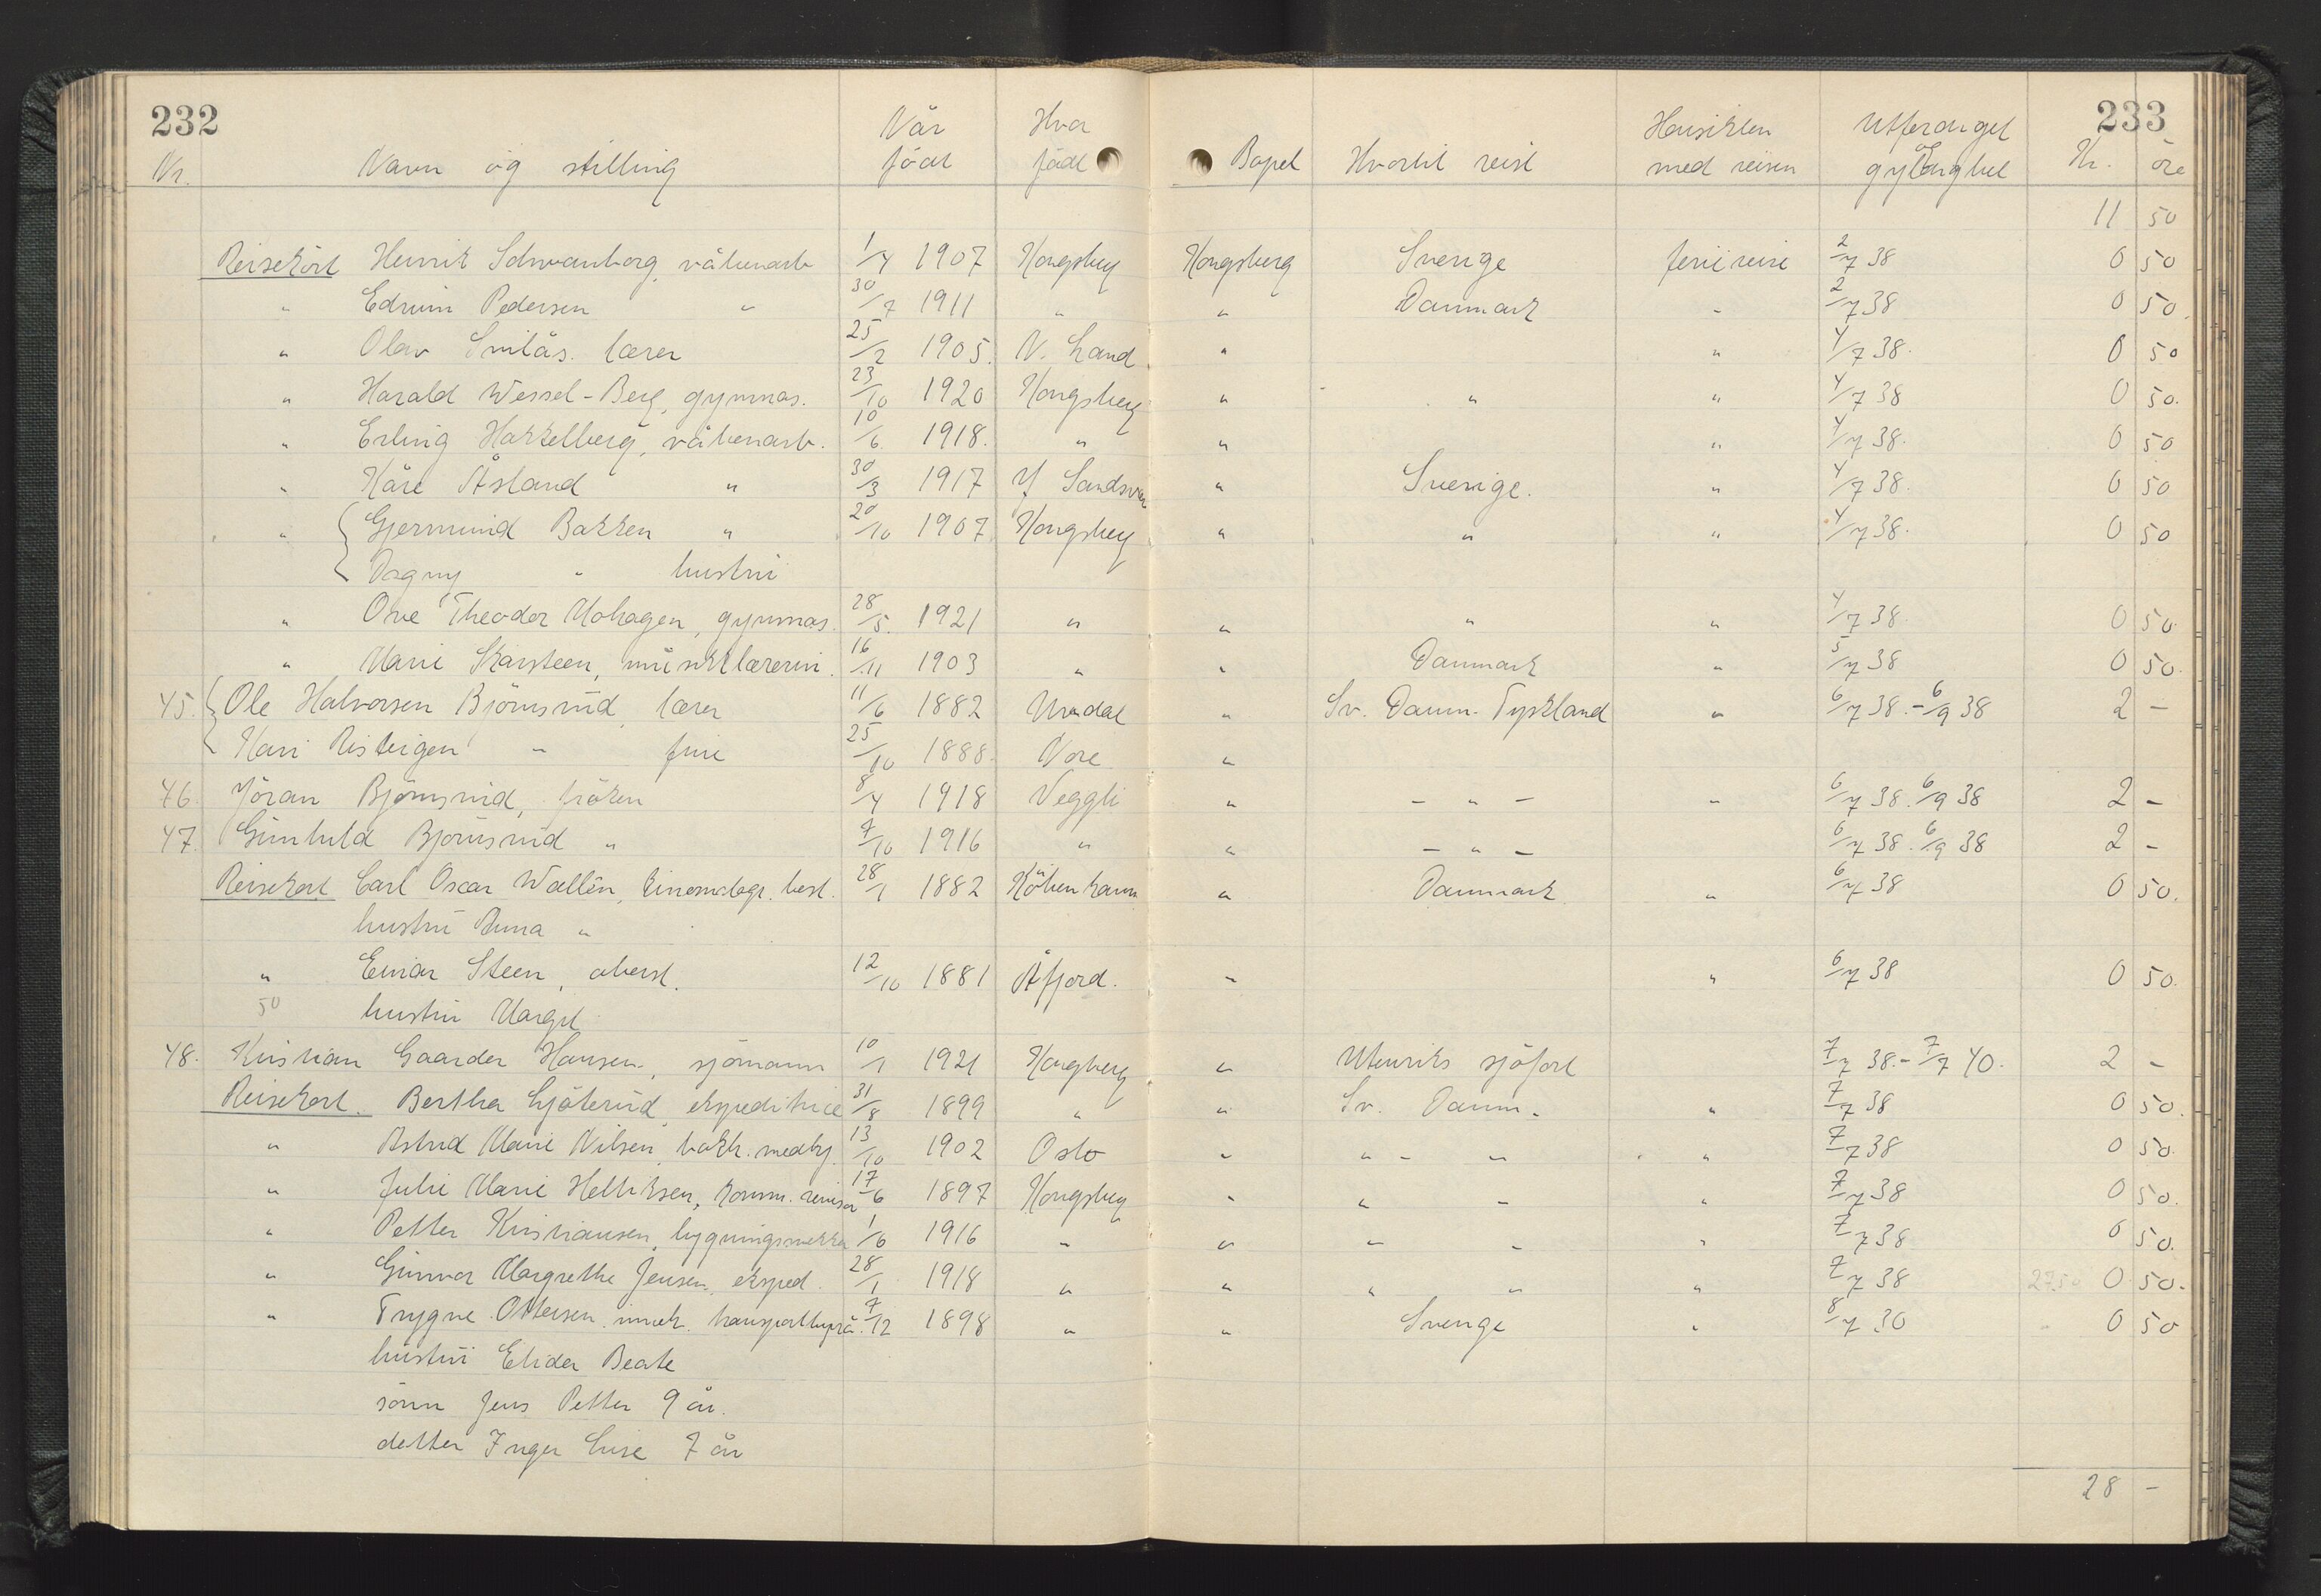 232 233
Når Hvor Hensikten Utferdiget
Nr. Navn og stilling född född Bopel Hvortil reist med reisen og gyldighet Kr. öre
11 50
Reisekort Henrik Schwanborg, våbenarb 1/4 1907 Kongsberg Kongsberg Sverige feriereise 2/7 38 0 50
" Edvin Pedersen " 30/7 1911 " " Danmark " 2/7 38 0 50.
" Olav Smilås. lærer 25/2 1905. N. Land " " 4/7 38. 0 50
" Harald Wessel-Berg, gymnas. 23/10 1920 Kongsberg " " " 4/7 38 0 50.
" Erling Hakkelberg, våbenarb. 10/6 1918. " " " 4/7 38. 0 50
" Kåre Åsland " 30/3 1917 Y Sandsvær " Sverige. " 4/7 38. 0 50
" Gjermund Bakken " 20/10 1907 Kongsberg " " " 4/7 38. 0 50
Dagny " hustru
" Ove Theodor Mohagen, gymnas. 28/5. 1921 " " " " 4/7 38 0 50.
" Marie Skarsteen, musikklærerin. 16/11 1903 " " Danmark " 5/7 38 0 50.
45. Ole Halvorsen Björnsrud, lærer 11/6 1882 Uvdal " Sv. Danm. Tyskland " 6/7 38.-6/9 38 2 -
Kari Risteigen " frue 25/10 1888. Nore "
46. Jöran Björnsrud, fröken 8/4 1918 Veggli " - " - " 6/7 38. 6/9 38 2 -
47. Gunhild Björnsrud " 7/10 1916 " " - " - 6/7 38. 6/9 38 2 -
Reisekort Carl Oscar Wallin, kinematogr. best. 28/1 1882 Köbenhavn " Danmark " 6/7 38 0 50.
hustru Anna "
" Einar Steen, oberst. 12/10 1881 Åfjord. " " 6/7 38 0 50.
50 hustru Margit
48. Kristian Gaarder Hansen, sjömann 10/1 1921 Kongsberg " Utenriks sjöfart 7/7 38.-7/7 40. 2 -
Reisekort. Bertha Ljöterud, ekspeditrice 31/8 1899 " " Sv. Danm. " 7/7 38 0 50.
" Astrid Marie Nilsen, bokh. medhj. 13/10 1902 Oslo " " - " " 7/7 38 0 50.
" Julie Marie Helliksen, komm. revisor 17/6 1897 Kongsberg " " - " 7/7 38 0 50.
" Petter Kristiansen, bygningssnekker 1/6 1916 " " " - " 7/7 38 0 50.
" Gunvor Margrethe Jensen, eksped. 28/1 1918 " " " " " 7/7 38 27.50 0 50.
" Trygve Ottersen, inneh. transportbyrå. 7/12 1898 " " Sverige " 8/7 30 0 50
hustru Elida Beate
sönn Jens Petter 9 år.
detter Inger Lise 7 år
28 -